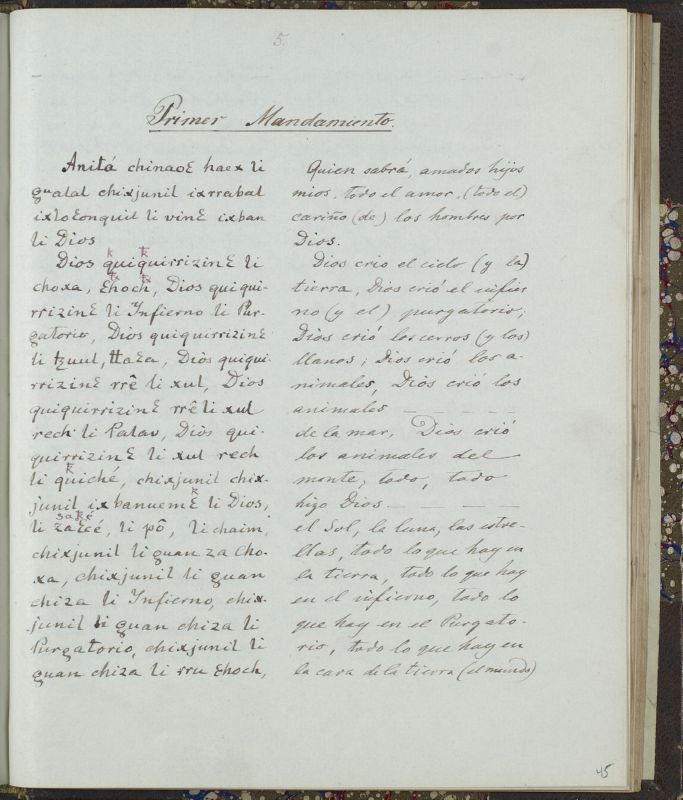 5.
Primer Mandamiento.
Anitá chinaoƐ haex li
gualal chixjunil ixrrabal
ixloƐonquil li vinƐ ixban
li Dios
Dios quiquirrizinƐ li
choxa, Ɛhoch, Dios quiqui-
rrizinƐ li Infierno li Pur-
gatorio, Dios quiquirrizinƐ
li tzuul, ttaƐa, Diòs quiqui-
rrizinƐ rrê li xul, Dios
quiquirrizinƐ rrê li xul
rech li Palau, Diòs qui-
quirrizinƐ li xul rech
li quiché, chixjunil chix-
junil ixbanuemƐ li Dios,
li zaƐcé, li pô, li chaim,
chixjunil li guan za cho-
xa, chixjunil li guan
chiza li Infierno, chix-
junil li guan chiza li
Purgatorio, chixjunil li
guan chiza li rru Ɛhoch,
Quien sabrá, amados hijos
mios, todo el amor, (todo el)
cariño (de) los hombres por
Dios.
Dios crio el cielo (y la)
tierra, Dios crió el infier
no (y el) purgatorio;
Diòs crió los cerros (y los)
llanos; Dios crió los a-
nimales, Diòs crió los
animales
de la mar, Dios crió
los animales del
monte; todo, todo
hizo Dios
el Sol, la luna, las estre-
llas, todo lo que hay en
la tierra, todo lo que hay
en el infierno, todo lo
que hay en el Purgato-
rio, todo lo que hay en
la cara de la tierra (el mundo)
45